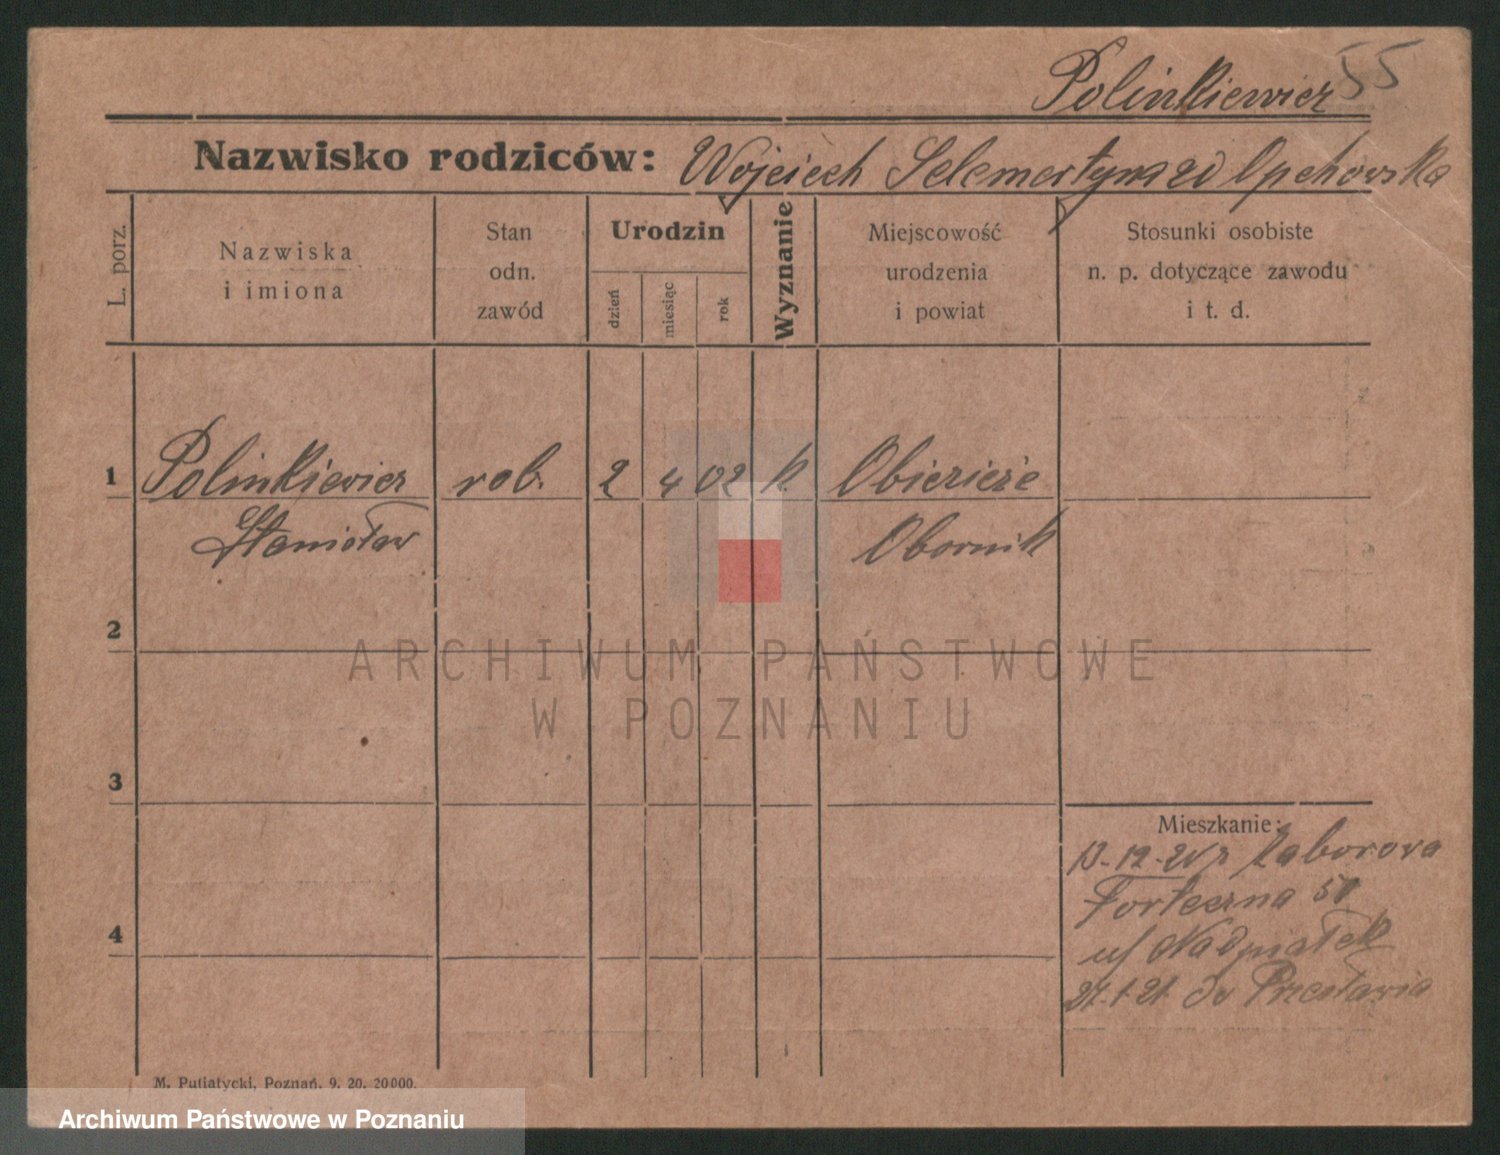 55
Polinkiewicz
Nazwisko rodziców: Wojciech
L. porz.
Nazwiska
i imiona
Stan
odn.
zawód
Urodzin
dzień
miesiąc
rok
Wyznanie
Miejscowość
urodzenia
i powiat
Stosunki osobiste
n. p. dotyczące zawodu
i t. d.
1 Polinkiewicz rob. 2 4 02 k. Obiezieże
Stanisław Obornik
2
3
4
Mieszkanie:
Zaborova
Forteczna
27.1.21 do
M. Putiatycki, Poznań. 9. 20. 20000.
ARCHIWUM PAŃSTWOWE
W POZNANIU
Archiwum Państwowe w Poznaniu